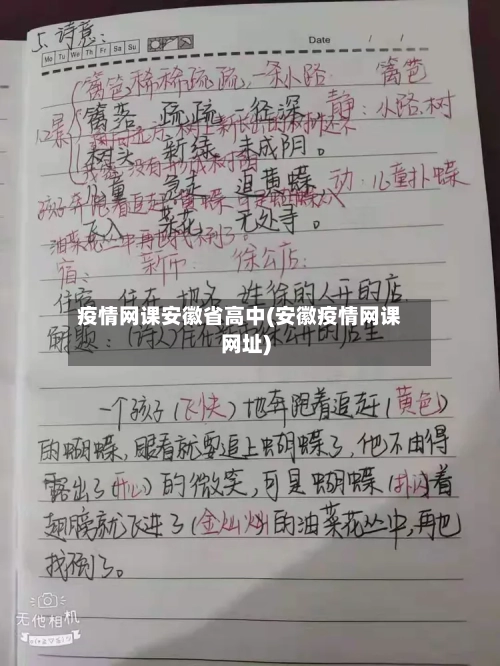 5. 诗意:
Date / /
Mo Tu We Th Fr Sa Su
篱笆稀稀疏疏,一条小路 篱笆
篱落 疏疏 一径深 静:小路.树
树头 新绿 未成阴。
儿童 急走 追黄蝶 动:儿童扑蝶
孩子奔跑着追赶黄蝶
飞入 菜花 无处寻。
宿: 新市: 徐公店:
住宿 住在 地名 姓徐的人开的店.
疫情网课安徽省高中(安徽疫情网课
网址)
解题:(诗人)
一个孩子(飞快)地奔跑着追赶(黄色)
的蝴蝶,眼看就要追上蝴蝶了,他不由得
露出了(开心)的微笑,可是蝴蝶(扑闪)着
翅膀就飞进了(金灿灿)的油菜花丛中,再也
找不到了。
无他相机